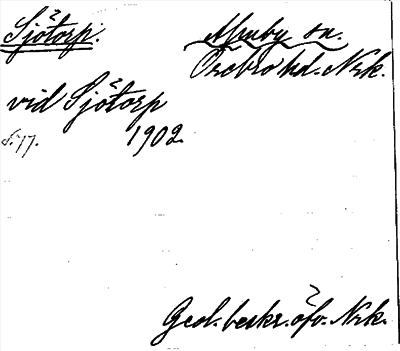 Sjötorp.
Almby sn.
Örebro hd. Nrk.
vid Sjötorp
s. 77. 1902.
Geol. beskr. öfv. Nrk.